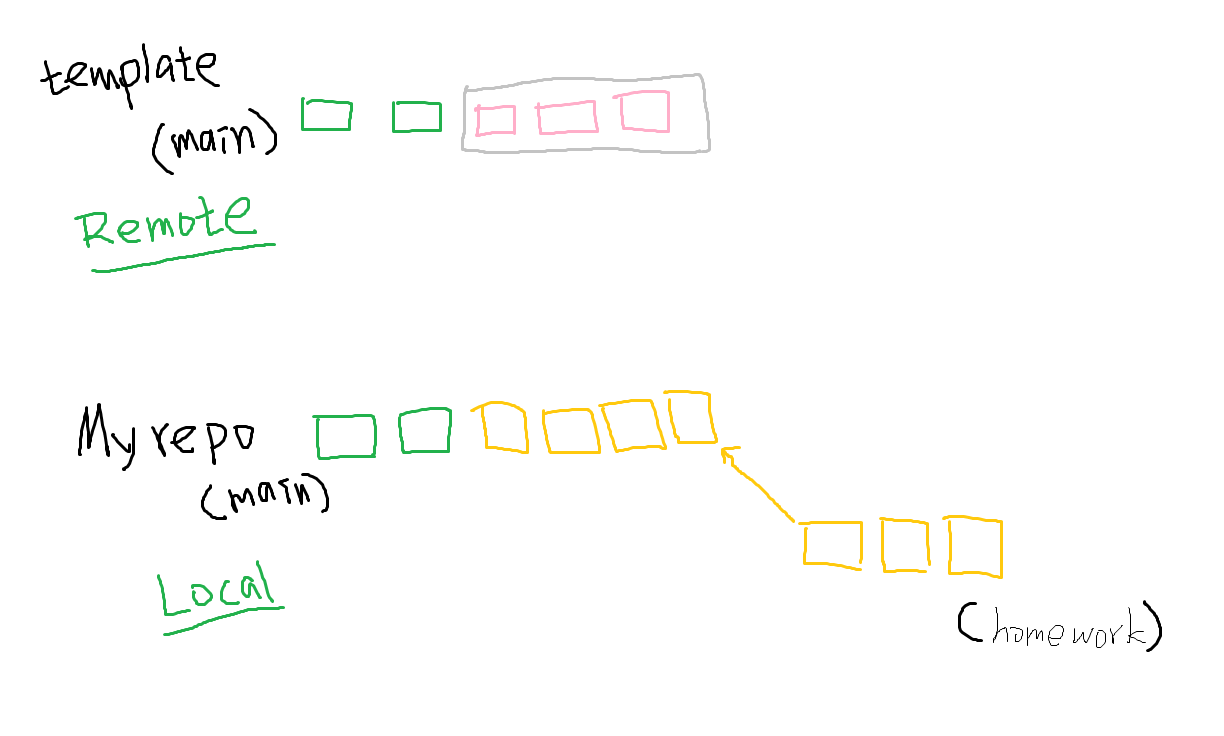 template
(main)
Remote
My repo
(main)
Local
(homework)